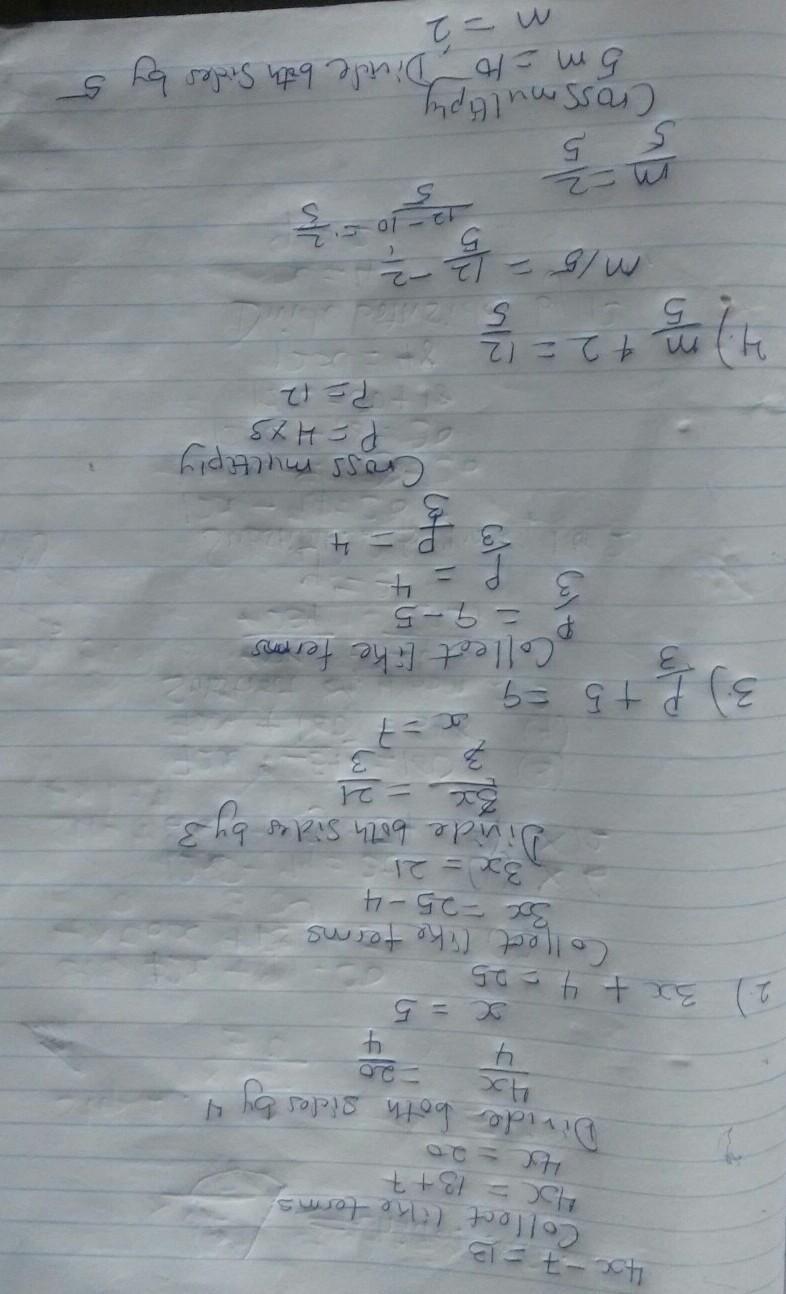 4x - 7 = 13
Collect like terms
4x = 13 + 7
4x = 20
Divide both sides by 4
4x/4 = 20/4
x = 5
2.) 3x + 4 = 25
Collect like terms
3x = 25 - 4
3x = 21
Divide both sides by 3
3x/3 = 21/3
x = 7
3.) P/3 + 5 = 9
Collect like terms
P/3 = 9 - 5
P/3 = 4
P/3 = 4
Cross multiply
P = 4 x 3
P = 12
4.) m/5 + 2 = 12/5
m/5 = 12/5 - 2/1
12 - 10/5 = 2/5
m/5 = 2/5
Cross multiply
5m = 10, Divide both sides by 5
m = 2